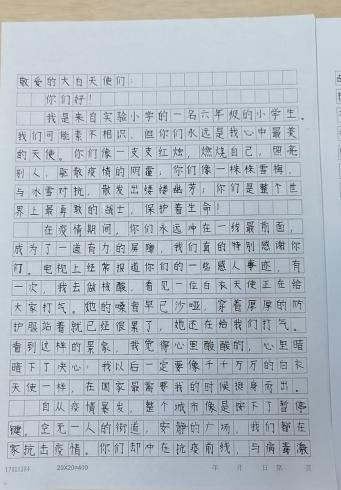 敬爱的大白天使们:
你们好!
我是来自实验小学的一名六年级的小学生。
我们可能素不相识,但你们永远是我心中最美
的天使。你们像一支支红烛,燃烧自己,照亮
别人,驱散疫情的阴霾;你们像一株株雪梅,
与冰雪对抗,散发出缕缕幽芳;你们是整个世
界上最勇敢的战士,保护着生命!
在疫情期间,你们永远冲在一线最前面,
成为了一道有力的屏障,我们真的特别感谢你
们。电视上经常报道你们的一些感人事迹,有
一次,我去做核酸,看见一位白衣天使正在给
大家打气。她的嗓音早已沙哑,穿着厚厚的防
护服站着就已经很累了,她还在给我们打气。
看到这样的景象,我觉得心里酸酸的,心里暗
暗下了决心:我以后一定要像千千万万的白衣
天使一样,在国家最需要我的时候挺身而出。
自从疫情暴发,整个城市像是按下了暂停
键。空无一人的街道,安静的广场,我们都在
家抗击疫情。你们却冲在抗疫前线,与病毒激
20X20=400 年 月 日 第 页